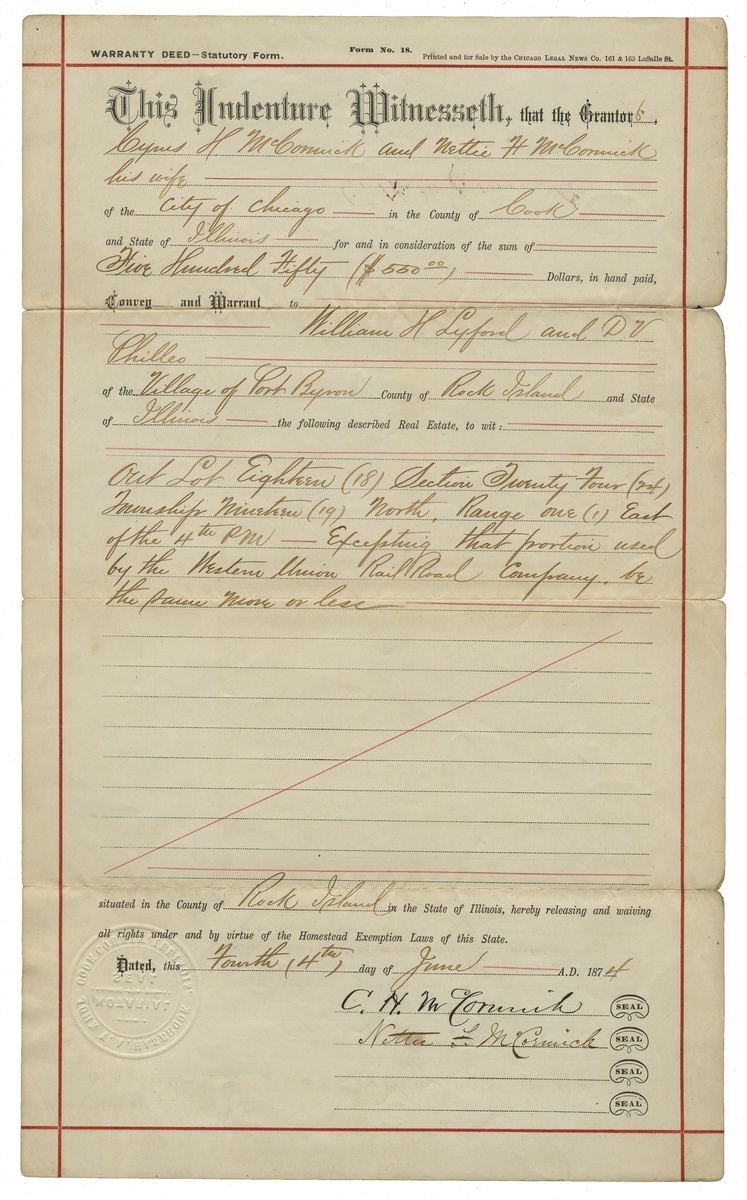 WARRANTY DEED—Statutory Form.
Form No. 18.
Printed and for Sale by the CHICAGO LEGAL NEWS Co. 161 & 163 LaSalle St.
This Indenture Witnesseth, that the Grantors,
Cyrus H McCormick and Nettie F McCormick
his wife
of the City of Chicago in the County of Cook
and State of Illinois for and in consideration of the sum of
Five Hundred Fifty ($550 00) Dollars, in hand paid,
Convey and Warrant to
William H. Lyford and D V
Philleo
of the Village of Port Byron County of Rock Island and State
of Illinois the following described Real Estate, to wit:
Out Lot Eighteen (18) Section Twenty Four (24)
Township Nineteen (19) North, Range one (1) East
of the 4th PM — Excepting that portion used
by the Western Union Rail Road Company. be
the same more or less
situated in the County of Rock Island in the State of Illinois, hereby releasing and waiving
all rights under and by virtue of the Homestead Exemption Laws of this State.
Dated, this Fourth (4th) day of June A.D. 1874
C. H. McCormick SEAL
Nettie F. McCormick SEAL
SEAL
SEAL
NOTARIAL
SEAL